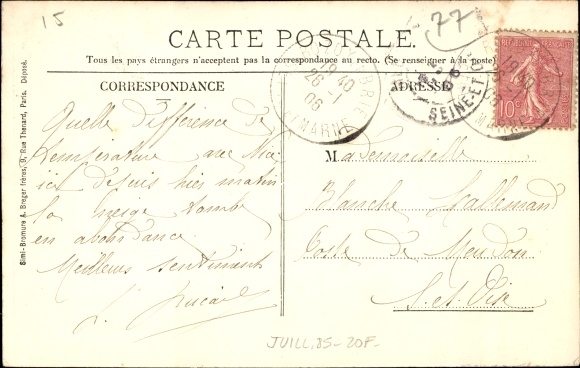 15
77
CARTE POSTALE.
Tous les pays étrangers n'acceptent pas la correspondance au recto. (Se renseigner à la poste)
CORRESPONDANCE
ADRESSE
Quelle différence de
température avec Nice
ici depuis hier matin
la neige tombe
en abondance.
Meilleurs sentiments
Mademoiselle
Blanche Lallemand
Poste de Meudon
S. et Oise
19 40
26 - 1
06
BRIE
MARNE
SEINE-ET
10c
Simi-Bromure A. Breger frères, 9, Rue Thénard, Paris. Déposé.
JUILL. 85 - 20F -